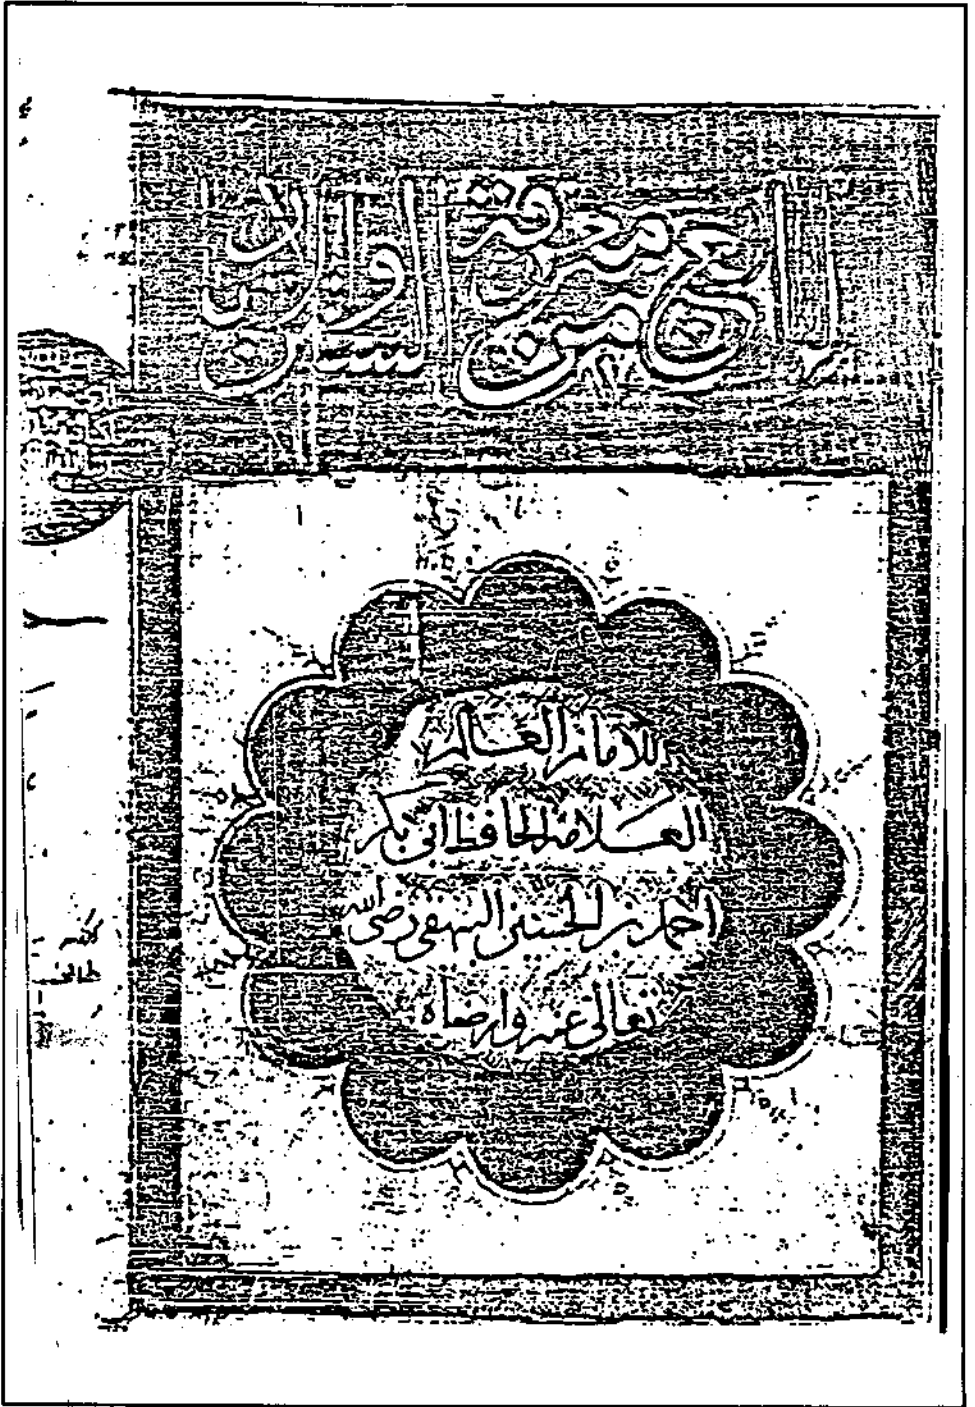 الرابع من معرفة السنن والآثار
للامام العالم
العلامة الحافظ ابي بكر
احمد بن الحسين البيهقي رضي الله
تعالى عنه وارضاه